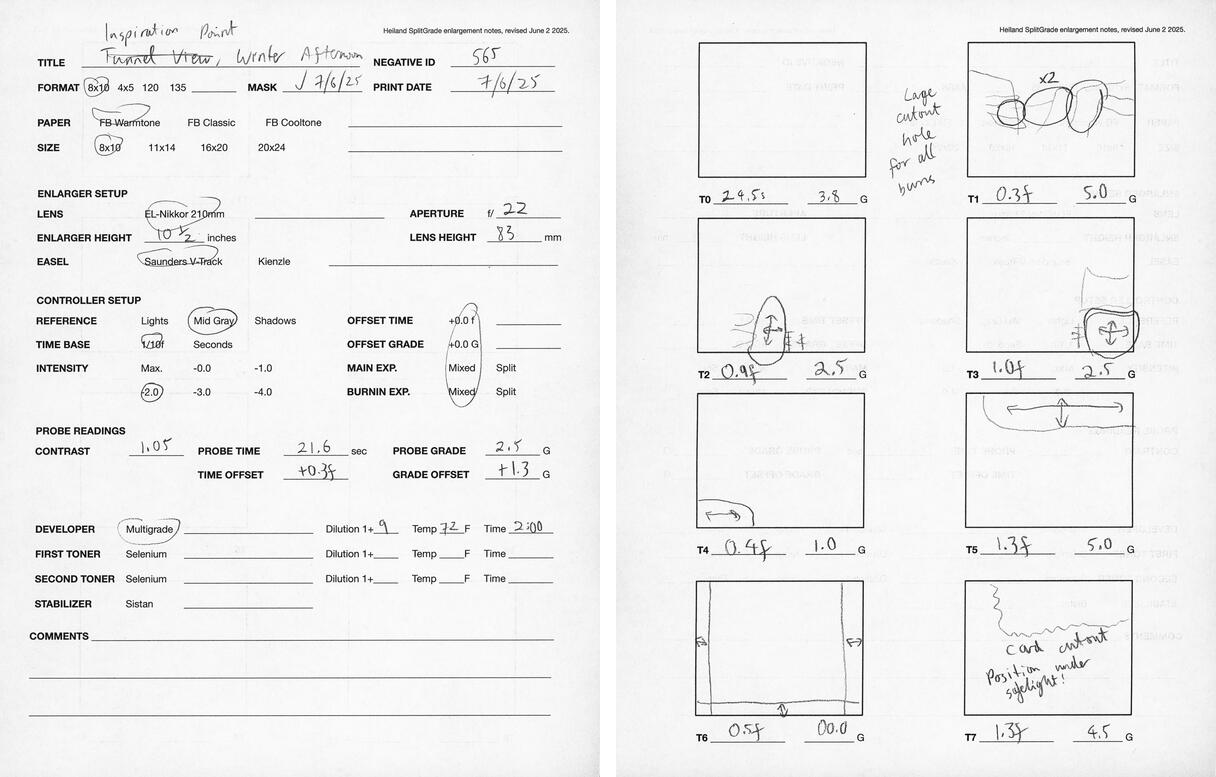 Heiland SplitGrade enlargement notes, revised June 2 2025.
Inspiration Point
TITLE Tunnel View, Winter Afternoon NEGATIVE ID 565
FORMAT 8x10 4x5 120 135 MASK √ 7/6/25 PRINT DATE 7/6/25
PAPER FB Warmtone FB Classic FB Cooltone
SIZE 8x10 11x14 16x20 20x24
ENLARGER SETUP
LENS EL-Nikkor 210mm APERTURE f/ 22
ENLARGER HEIGHT 10 1/2 inches LENS HEIGHT 83 mm
EASEL Saunders V-Track Kienzle
CONTROLLER SETUP
REFERENCE Lights Mid Gray Shadows OFFSET TIME +0.0 f
TIME BASE 1/10f Seconds OFFSET GRADE +0.0 G
INTENSITY Max. -0.0 -1.0 MAIN EXP. Mixed Split
-2.0 -3.0 -4.0 BURNIN EXP. Mixed Split
PROBE READINGS
CONTRAST 1.05 PROBE TIME 21.6 sec PROBE GRADE 2.5 G
TIME OFFSET +0.3f GRADE OFFSET +1.3 G
DEVELOPER Multigrade Dilution 1+ 9 Temp 72 F Time 2:00
FIRST TONER Selenium Dilution 1+ Temp F Time
SECOND TONER Selenium Dilution 1+ Temp F Time
STABILIZER Sistan
COMMENTS
Heiland SplitGrade enlargement notes, revised June 2 2025.
Large
cutout
hole
for all
burns
x2
T0 24.5s 3.8 G
T1 0.3f 5.0 G
T2 0.9f 2.5 G
T3 1.0f 2.5 G
T4 0.4f 1.0 G
T5 1.3f 5.0 G
T6 0.5f 00.0 G
Card cutout
Position under
safelight!
T7 1.3f 4.5 G